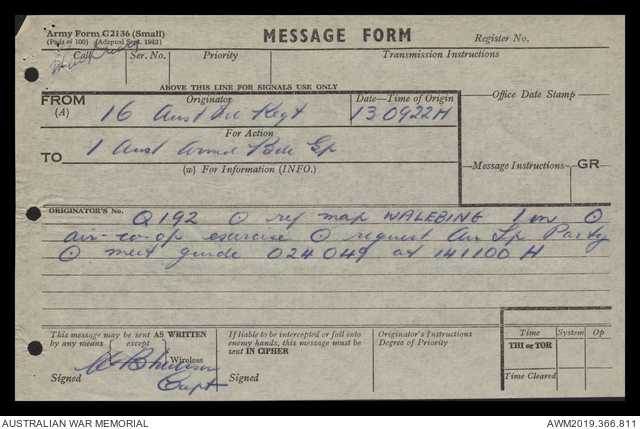 Army Form C2136 (Small)
(Pads of 100) (Adapted Sept. 1942)
MESSAGE FORM
Register No.
Call
Ser. No.
Priority
Transmission Instructions
ABOVE THIS LINE FOR SIGNALS USE ONLY
FROM
(A)
Originator
Date—Time of Origin
Office Date Stamp
16 Aust Regt
130922H
For Action
TO
1 Aust Armd Bde Gp
(w) For Information (INFO.)
Message Instructions
GR
ORIGINATOR'S No.
Q192 O ref map WALEBING 1 m O
air-co-op exercise O request Air Lp Party
O meet guide 024049 at 141100 H
This message may be sent AS WRITTEN
by any means except
Wireless
Signed
Capt
If liable to be intercepted or fall into
enemy hands, this message must be
sent IN CIPHER
Signed
Originator's Instructions
Degree of Priority
Time
System
Op
THI or TOR
Time Cleared
AUSTRALIAN WAR MEMORIAL
AWM2019.366.811